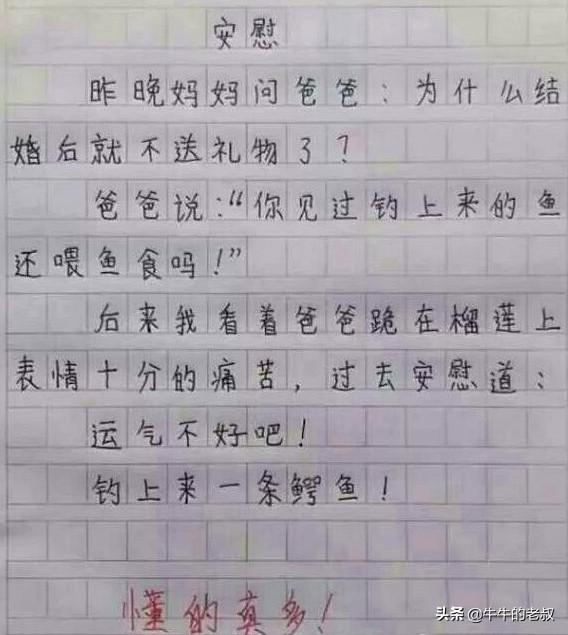 安慰
昨晚妈妈问爸爸：为什么结
婚后就不送礼物了？
爸爸说：“你见过钓上来的鱼
还喂鱼食吗！”
后来我看着爸爸跪在榴莲上
表情十分的痛苦，过去安慰道：
运气不好吧！
钓上来一条鳄鱼！
懂的真多！
头条 @牛牛的老叔